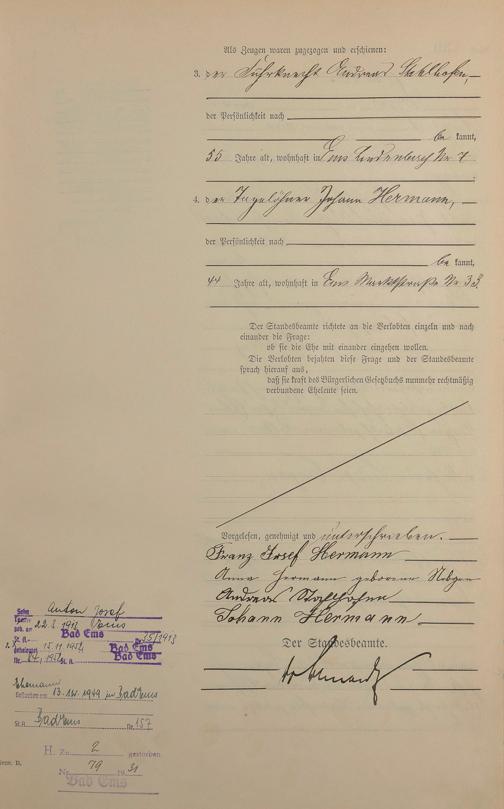 Als Zeugen waren zugezogen und erschienen:
3. der Fuhrknecht Andreas Stahlhofen,
der Persönlichkeit nach
be kannt,
55 Jahre alt, wohnhaft in Ems Nr 7
4. der Tagelöhner Johann Hermann,
der Persönlichkeit nach
be kannt,
44 Jahre alt, wohnhaft in Ems Marktstraße Nr 33.
Der Standesbeamte richtete an die Verlobten einzeln und nach
einander die Frage:
ob sie die Ehe mit einander eingehen wollen.
Die Verlobten bejahten diese Frage und der Standesbeamte
sprach hierauf aus,
daß sie kraft des Bürgerlichen Gesetzbuchs nunmehr rechtmäßig
verbundene Eheleute seien.
Vorgelesen, genehmigt und unterschrieben.
Franz Josef Hermann
Anna Hermann geborene
Andreas Stahlhofen
Johann Hermann
Der Standesbeamte.
Sohn Anton Josef
geb. am 22.3.1913
Bad Ems
St. A. 35/1913
15.11.1952 Bad Ems
Nr. St. A. Bad Ems
Ehemann
Gestorben am 13. 1949 in Bad Ems
St. A. Bad Ems Nr. 157
H. Zu 2 gestorben
Nr. 79 1931
Bad Ems